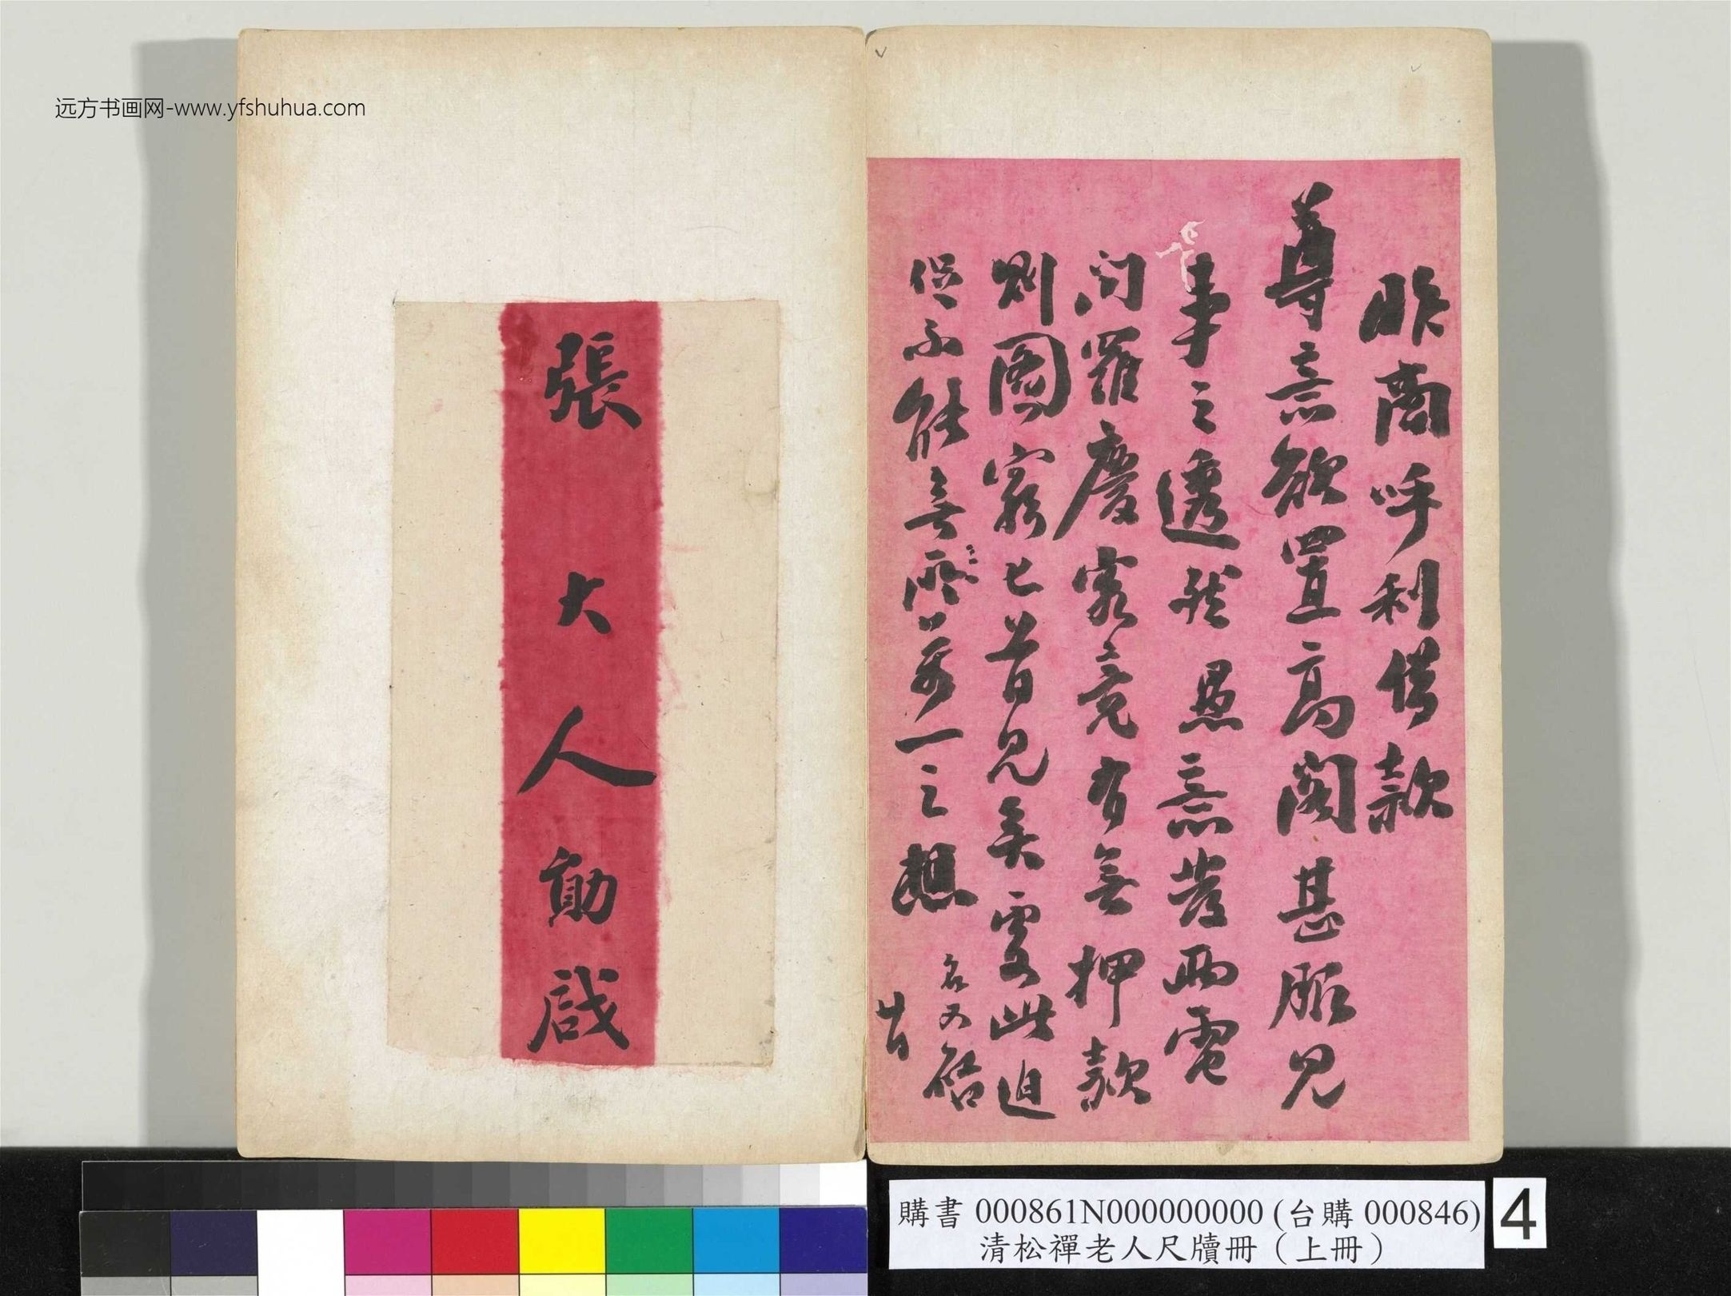 昨商呼利借款
尊意欲置高閣甚服見
事之透然愚意發兩電
问羅慶究竟有無押款
則圖窮匕首見矣處此迫
促不能無所萬一之想
名又啓
廿日
張大人勛啟
远方书画网-www.yfshuhua.com
購書 000861N000000000 (台購 000846)
清松禪老人尺牘冊（上冊）
4